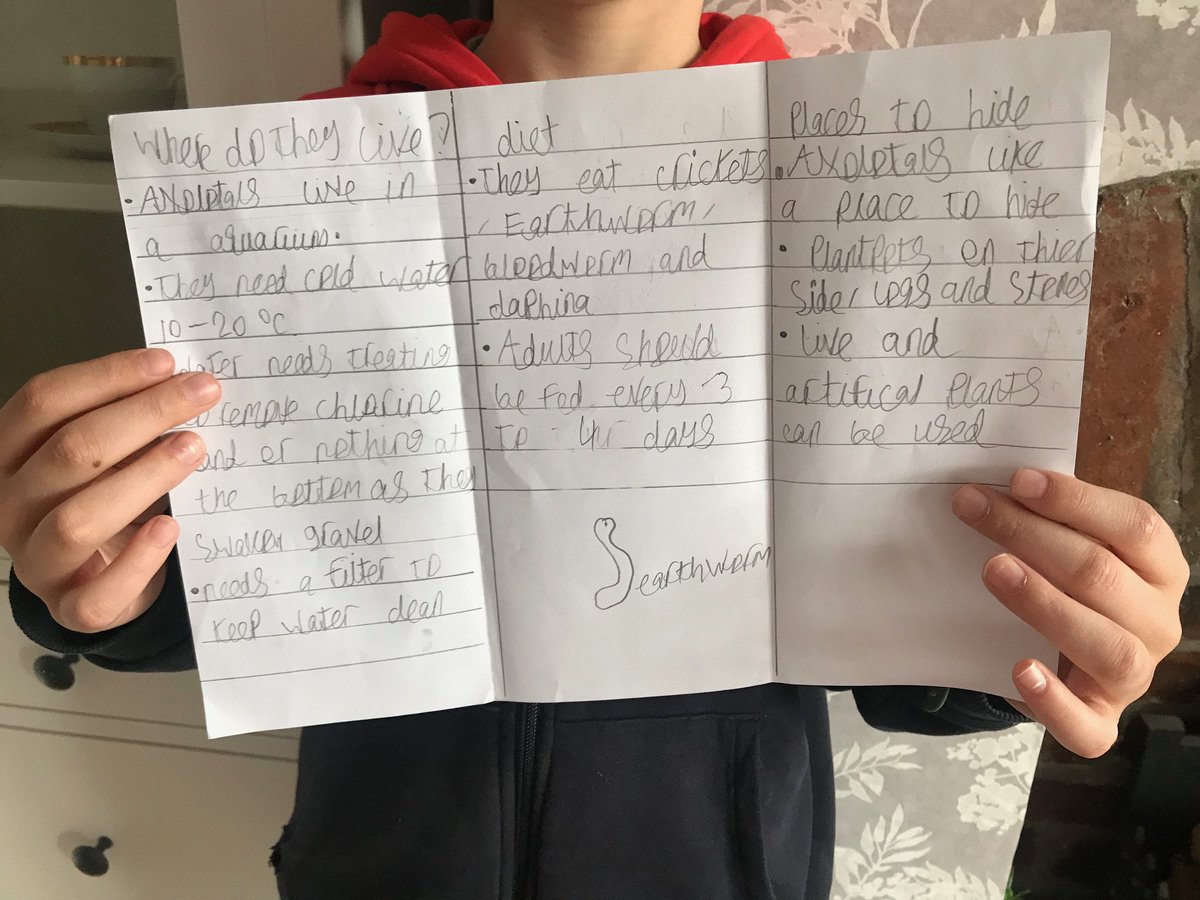 Where do they live?
• Axolotals live in
a aquarium.
• They need cold water
10-20°C
water needs treating
to remove chlorine
and or nothing at
the bottom as they
swallow gravel
• needs a filter to
keep water clean
diet
• They eat crickets,
Earthworm,
bloodworm and
daphina
• Adults should
be fed every 3
to 4 days
earthworm
Places to hide
• Axolotals like
a place to hide
• Plantpots on thier
side, logs and stones
• live and
artifical plants
can be used